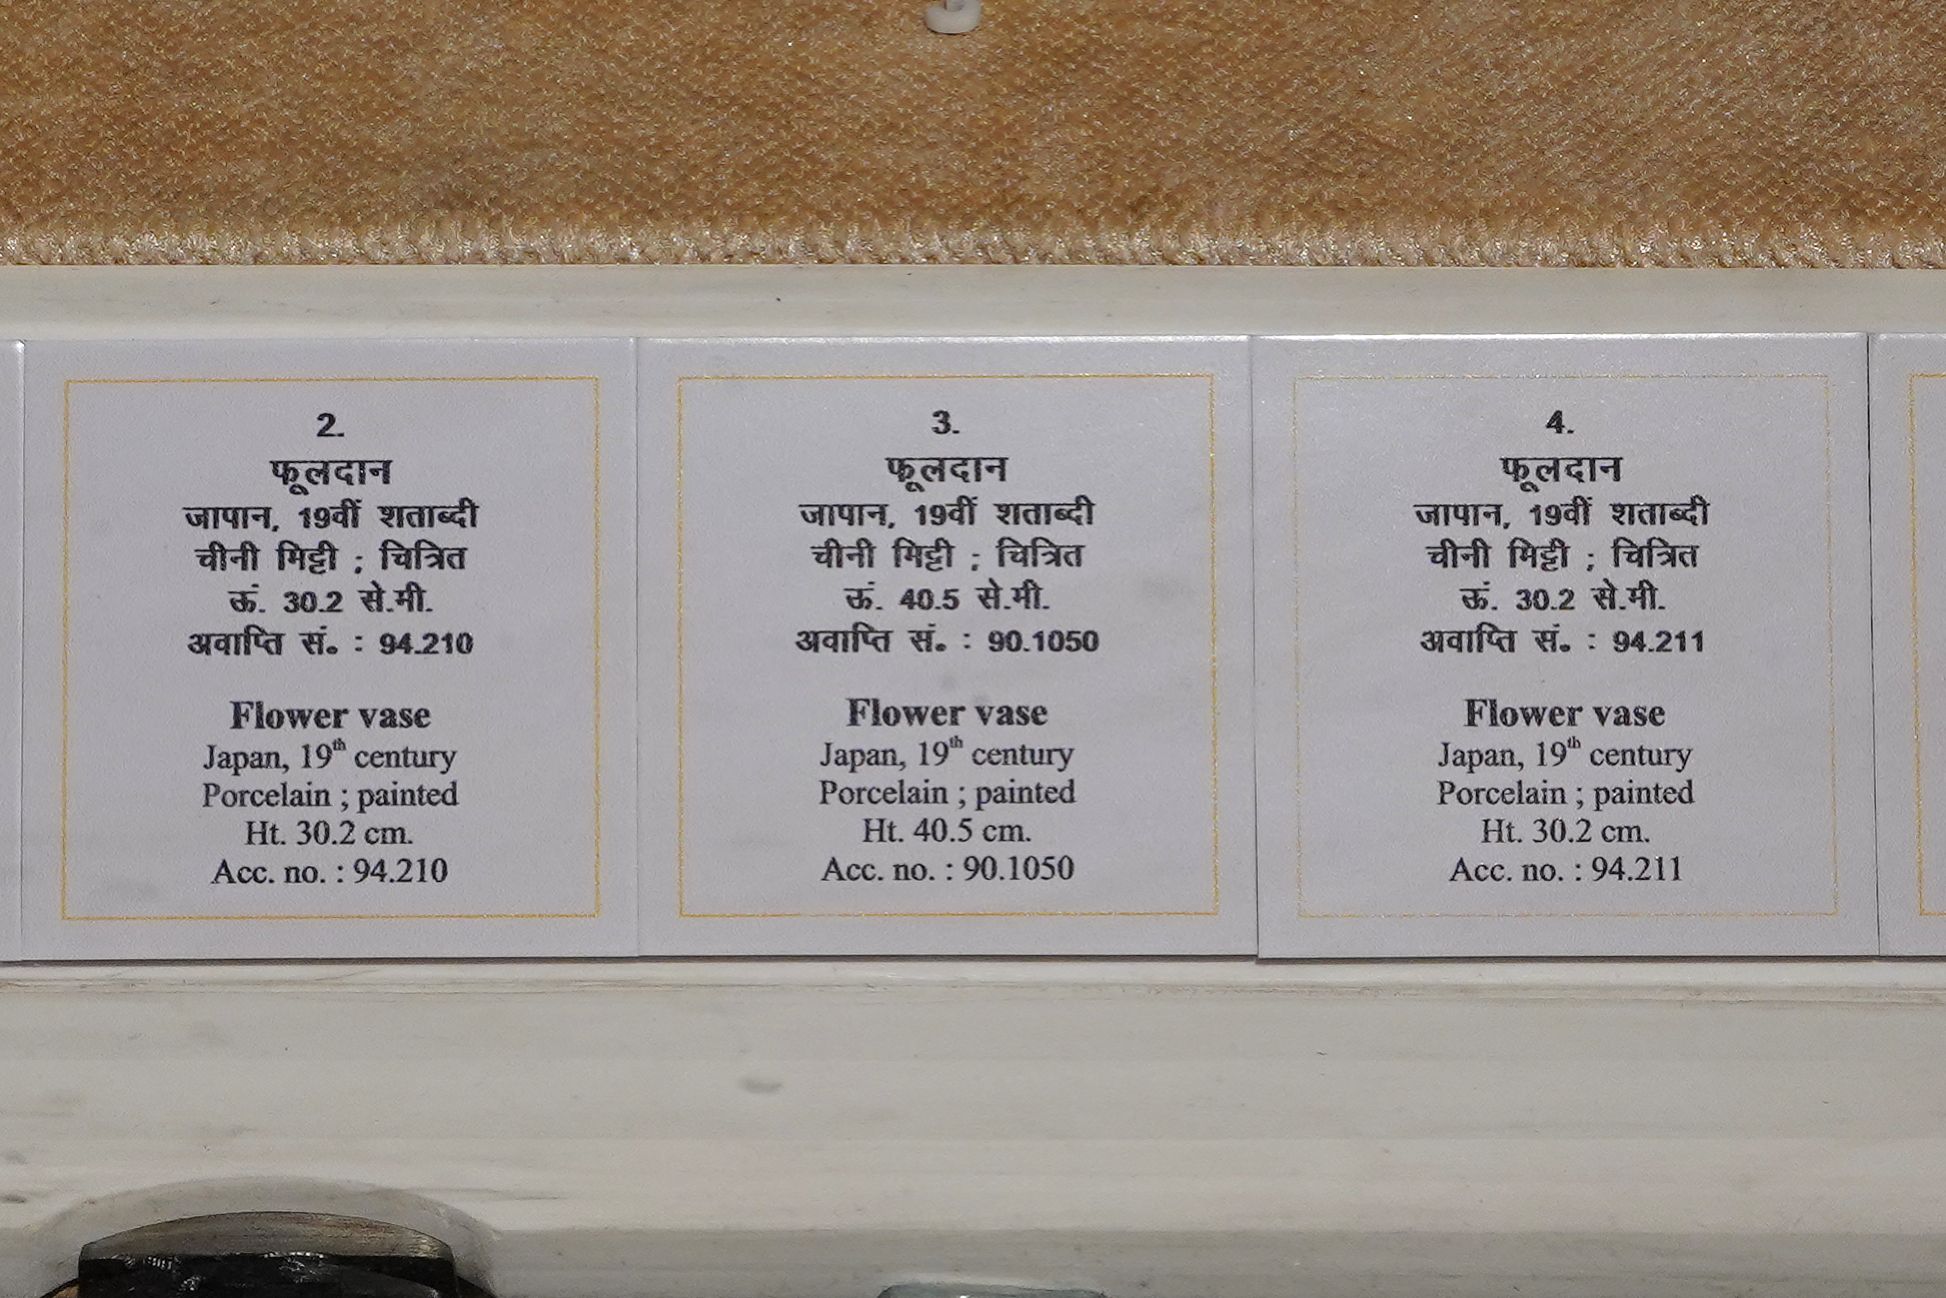 2.
फूलदान
जापान, 19वीं शताब्दी
चीनी मिट्टी ; चित्रित
ऊं. 30.2 से.मी.
अवाप्ति सं. : 94.210
Flower vase
Japan, 19th century
Porcelain ; painted
Ht. 30.2 cm.
Acc. no. : 94.210
3.
फूलदान
जापान, 19वीं शताब्दी
चीनी मिट्टी ; चित्रित
ऊं. 40.5 से.मी.
अवाप्ति सं. : 90.1050
Flower vase
Japan, 19th century
Porcelain ; painted
Ht. 40.5 cm.
Acc. no. : 90.1050
4.
फूलदान
जापान, 19वीं शताब्दी
चीनी मिट्टी ; चित्रित
ऊं. 30.2 से.मी.
अवाप्ति सं. : 94.211
Flower vase
Japan, 19th century
Porcelain ; painted
Ht. 30.2 cm.
Acc. no. : 94.211